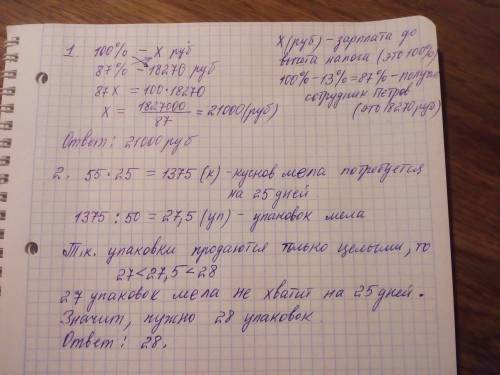 1. 100% – X руб
87% – 18270 руб
87X = 100·18270
X = 1827000/87 = 21000 (руб)
Ответ: 21000 руб
X (руб) – зарплата до
вычета налога (это 100%)
100% – 13% = 87% – получил
сотрудник Петров
(это 18270 руб)
2. 55·25 = 1375 (к) – кусков мела потребуется
на 25 дней
1375 : 50 = 27,5 (уп) – упаковок мела
Т.к. упаковки продаются только целыми, то
27 < 27,5 < 28
27 упаковок мела не хватит на 25 дней.
Значит, нужно 28 упаковок
Ответ: 28.